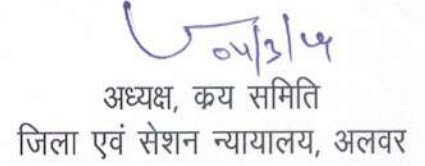 अध्यक्ष, क्रय समिति
जिला एवं सेशन न्यायालय, अलवर